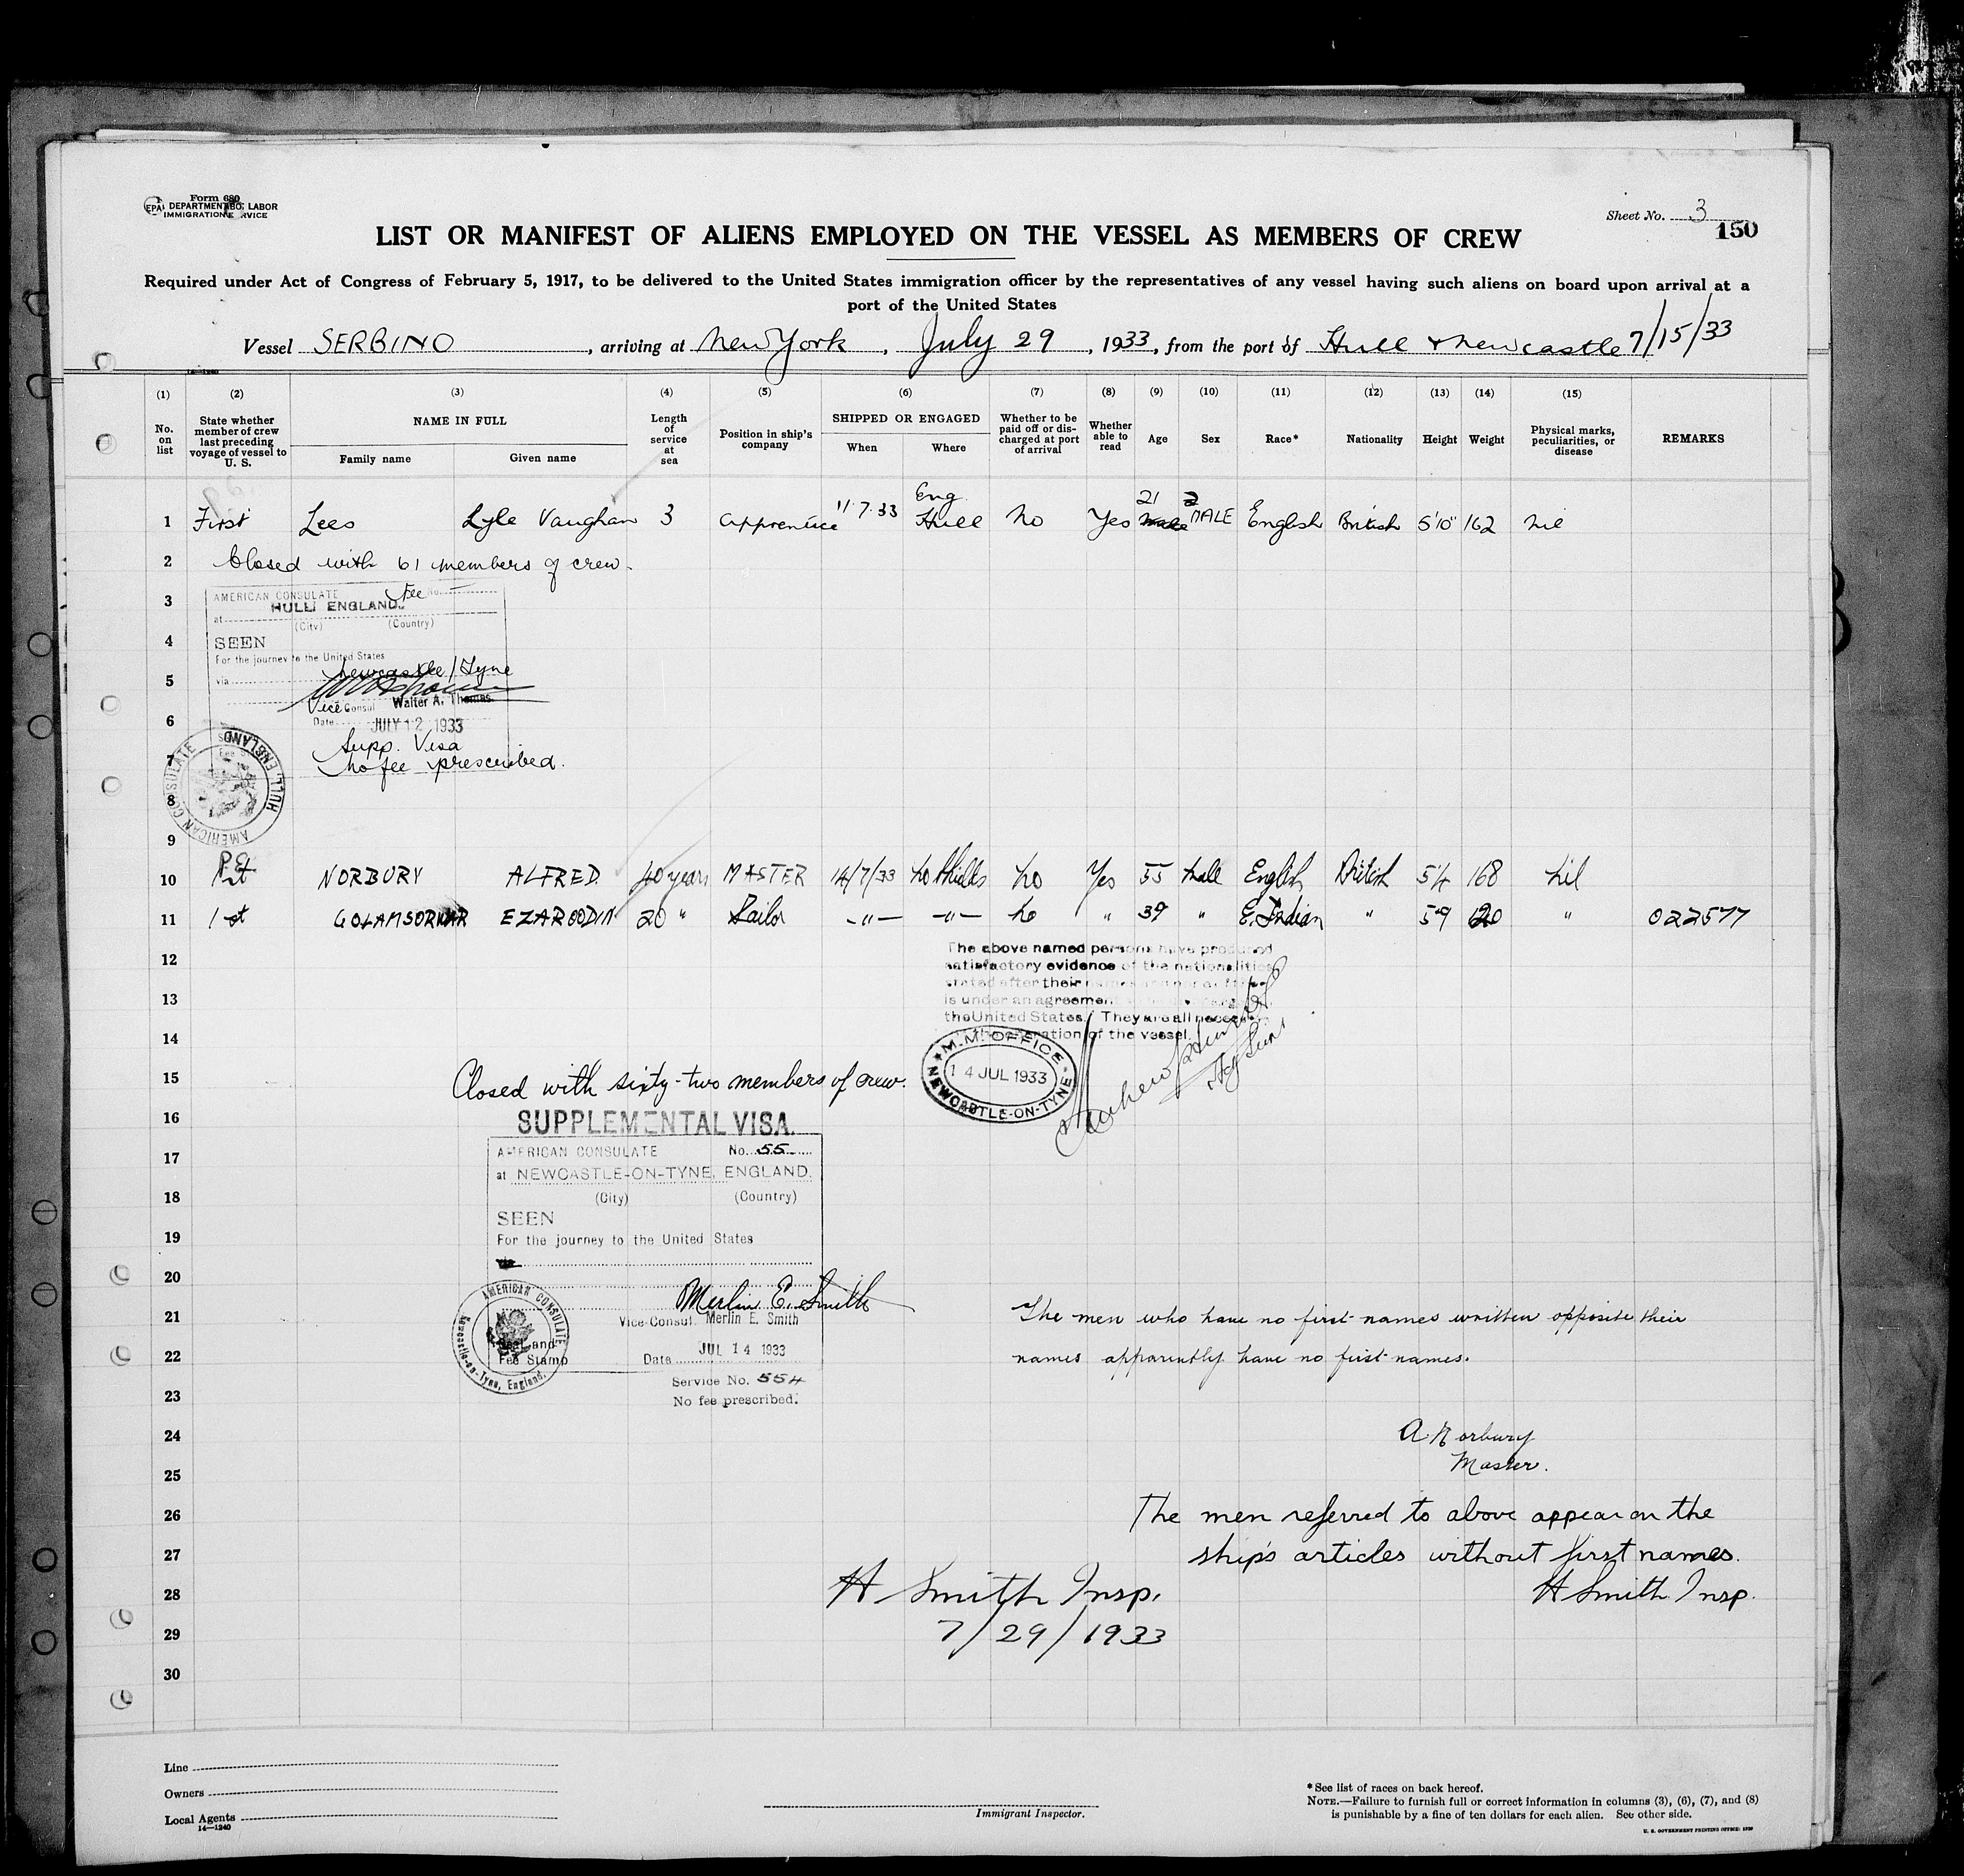 Form 680
DEPARTMENT OF LABOR
IMMIGRATION SERVICE
Sheet No. 3
150
LIST OR MANIFEST OF ALIENS EMPLOYED ON THE VESSEL AS MEMBERS OF CREW
Required under Act of Congress of February 5, 1917, to be delivered to the United States immigration officer by the representatives of any vessel having such aliens on board upon arrival at a
port of the United States
Vessel SERBINO, arriving at New York, July 29, 1933, from the port of Hull & Newcastle 7/15/33
(1) (2) (3) (4) (5) (6) (7) (8) (9) (10) (11) (12) (13) (14) (15)
No. on list
State whether member of crew last preceding voyage of vessel to U. S.
NAME IN FULL
Family name
Given name
Length of service at sea
Position in ship's company
SHIPPED OR ENGAGED
When
Where
Whether to be paid off or discharged at port of arrival
Whether able to read
Age
Sex
Race*
Nationality
Height
Weight
Physical marks, peculiarities, or disease
REMARKS
1 First Lees Lyle Vaughan 3 apprentice 11.7.33 Eng. Hull No Yes 21 MALE English British 5'10" 162 nil
2 Closed with 61 members of crew.
3
AMERICAN CONSULATE Fee No.
at HULL ENGLAND.
(City) (Country)
4
SEEN
For the journey to the United States
5
via Newcastle/Tyne
Vice Consul Walter A. Thomas
6
Date JULY 12 1933
Supp. Visa
7
No fee prescribed.
8
AMERICAN CONSULATE HULL, ENGLAND
9
10 1st NORBURY ALFRED. 40 years MASTER 14/7/33 No Shields No Yes 55 Male English British 5'4 168 Nil
11 1st GOLAMSORKAR EZAROODIN 20 " Sailor -"- -"- No " 39 " E. Indian " 5'9 120 " 022577
12
The above named persons have produced
satisfactory evidence of the nationalities
13
stated after their names
is under an agreement
the United States. They are all necessary
14
the operation of the vessel.
M.M. OFFICE
14 JUL 1933
NEWCASTLE-ON-TYNE
15 Closed with sixty-two members of crew.
16 SUPPLEMENTAL VISA.
17
AMERICAN CONSULATE No. 55
at NEWCASTLE-ON-TYNE, ENGLAND.
18 (City) (Country)
SEEN
19 For the journey to the United States
via
20
Merlin E. Smith
21 Vice-Consul. Merlin E. Smith
The men who have no first names written opposite their
22 names apparently have no first names.
AMERICAN CONSULATE
Newcastle-on-Tyne, England.
Seal and
Fee Stamp
Date JUL 14 1933
Service No. 554
23 No fee prescribed.
24 A. Norbury
25 Master.
26 The men referred to above appear on the
27 ship's articles without first names.
28 H Smith Insp. H Smith Insp.
29 7/29/1933
30
Line
Owners
Local Agents
14—1240
Immigrant Inspector.
* See list of races on back hereof.
NOTE.—Failure to furnish full or correct information in columns (3), (6), (7), and (8)
is punishable by a fine of ten dollars for each alien. See other side.